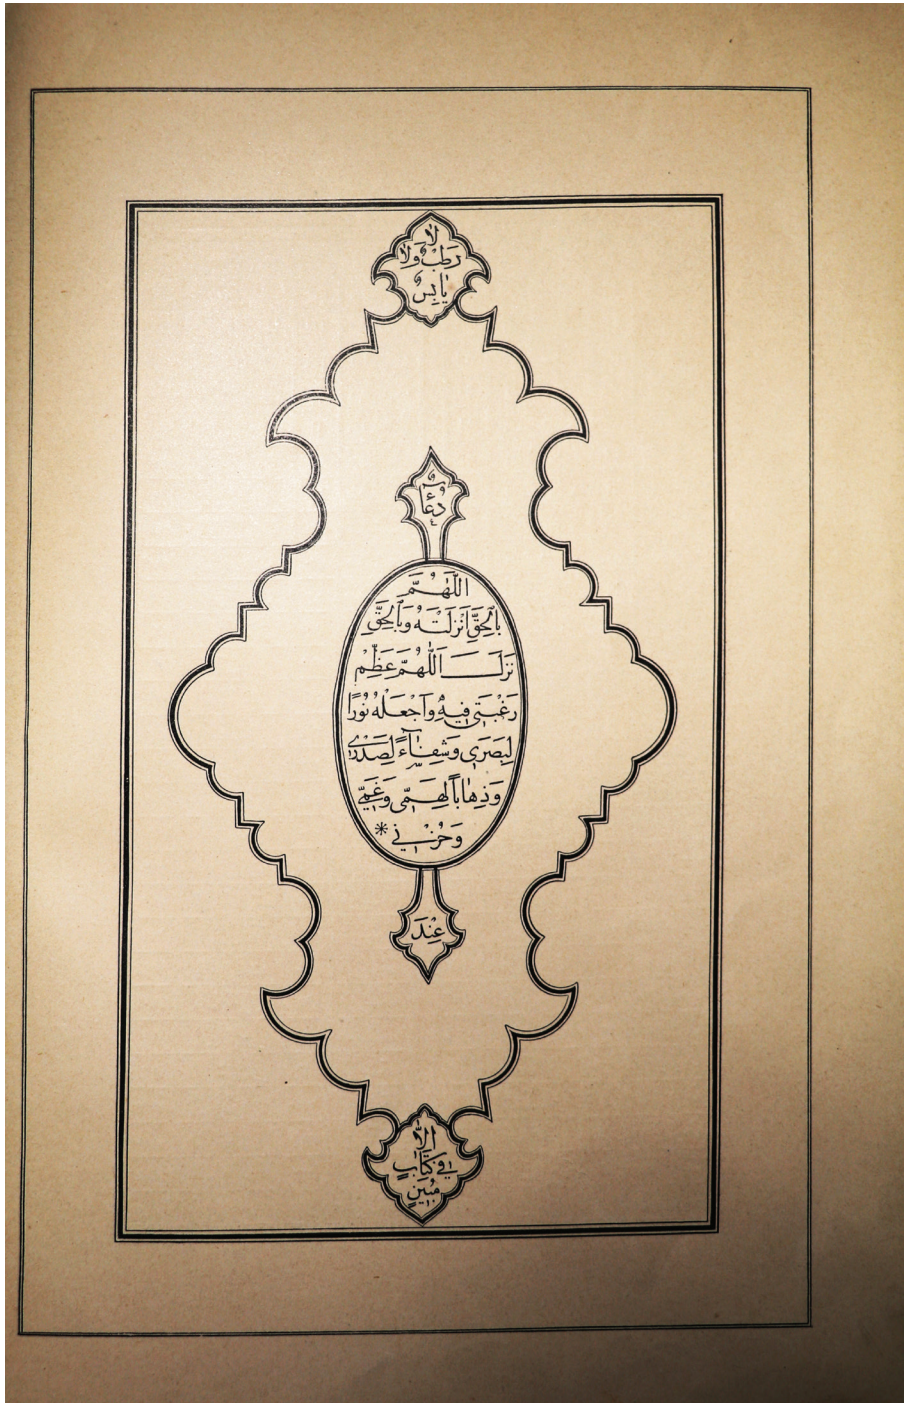 لا
رَطْبٍ وَلَا
يَابِسٍ
دُعَاءُ
اَللّٰهُمَّ
بِالْحَقِّ اَنْزَلْتَهُ وَبِالْحَقِّ
نَزَلَ اَللّٰهُمَّ عَظِّمْ
رَغْبَتِى فِيهِ وَاجْعَلْهُ نُورًا
لِبَصَرِى وَشِفَاءً لِصَدْرِى
وَذِهَابًا لِهَمِّى وَغَمِّى
وَحُزْنِى *
عِنْدَ
اِلَّا
فِى كِتَابٍ
مُبِينٍ